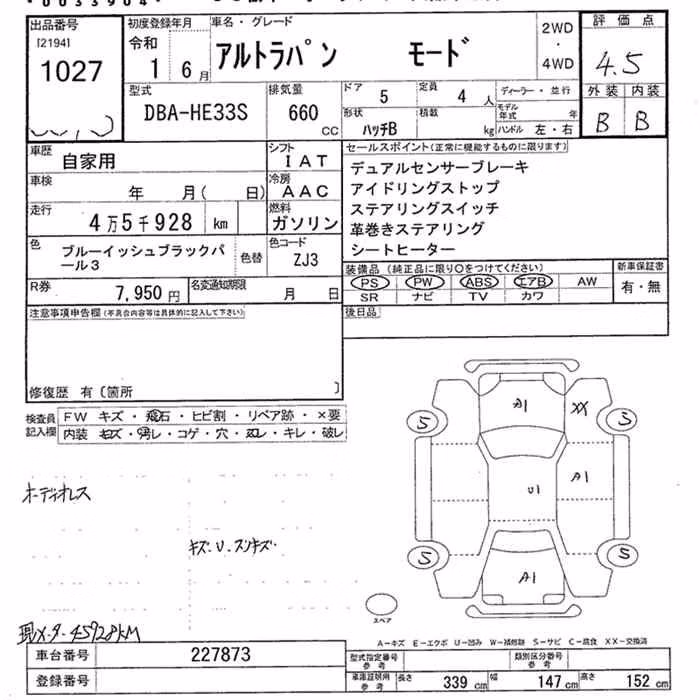 出品番号
[2194]
1027
初度登録年月
令和
1 6月
車名・グレード
アルトラパン モード
2WD
・
4WD
評価点
4.5
外装 内装
B B
型式
DBA-HE33S
排気量
660
CC
ドア
5
定員
4 人
形状
ハッチB
積載
kg
ディーラー・並行
モデル年式 年
ハンドル 左・右
車歴
自家用
シフト
IAT
車検
年 月( 日)
冷房
AAC
走行
4万5千928 km
燃料
ガソリン
色
ブルーイッシュブラックパ
ール3
色替
色コード
ZJ3
R券
7,950 円
名変通知期限
月 日
セールスポイント(正常に機能するものに限ります)
デュアルセンサーブレーキ
アイドリングストップ
ステアリングスイッチ
革巻きステアリング
シートヒーター
装備品(純正品に限り○をつけてください)
PS PW ABS エアB AW
SR ナビ TV カワ
新車保証書
有・無
後日品
注意事項申告欄(不具合内容等は具体的に記入して下さい)
修復歴 有〔箇所 〕
検査員
記入欄
FW キズ・飛石・ヒビ割・リペア跡・×要
内装 キズ・汚レ・コゲ・穴・スレ・キレ・破レ
オーディオレス
キズ・U・スリキズ・
現メーター45928KM
A1
XX
5
3
U1
A1
5
5
A1
スペア
A-キズ E-エクボ U-凹み W-補修跡 S-サビ C-腐食 XX-交換済
車台番号
227873
登録番号
型式指定番号
参考
類別区分番号
参考
車庫証明用
参考
長さ 339 cm
幅 147 cm
高さ 152 cm